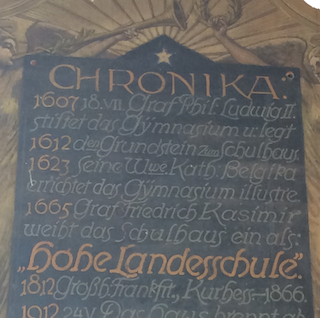 CHRONIKA.
1607 18.VII. Graf Phil. Ludwig II.
stiftet das Gymnasium u. legt
1612 den Grundstein zum Schulhaus.
1623 Seine Wwe. Kath. Belgika
errichtet das Gymnasium illustre
1665 Graf Friedrich Kasimir
weiht das Schulhaus ein als:
„Hohe Landesschule".
1812 Großh. Frankft., Kurhess–1866.
1912 24.V. Das Haus brennt ab